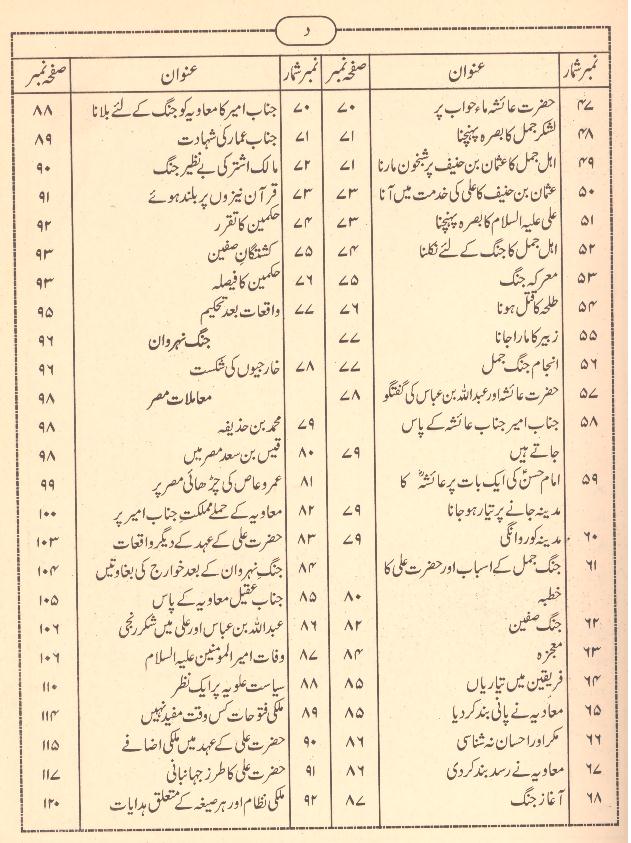 د
نمبر شمار عنوان صفحہ نمبر
۴۷ حضرت عائشہ ماء حواب پر ۷۰
۴۸ لشکر جمل کا بصرہ پہنچنا ۷۱
۴۹ اہل جمل کا عثمان بن حنیف پر شبخون مارنا ۷۱
۵۰ عثمان بن حنیف کا علی کی خدمت میں آنا ۷۳
۵۱ علی علیہ السلام کا بصرہ پہنچنا ۷۳
۵۲ اہل جمل کا جنگ کے لئے نکلنا ۷۴
۵۳ معرکہ جنگ ۷۵
۵۴ طلحہ کا قتل ہونا ۷۶
۵۵ زبیر کا مارا جانا ۷۷
۵۶ انجام جنگ جمل ۷۷
۵۷ حضرت عائشہ اور عبداللہ بن عباس کی گفتگو ۷۸
۵۸ جناب امیر جناب عائشہ کے پاس
جاتے ہیں ۷۹
۵۹ امام حسنؑ کی ایک بات پر عائشہؓ کا
مدینہ جانے پر تیار ہو جانا ۷۹
۶۰ مدینہ کو روانگی ۷۹
۶۱ جنگ جمل کے اسباب اور حضرت علی کا
خطبہ ۸۰
۶۲ جنگ صفین ۸۲
۶۳ معجزہ ۸۴
۶۴ فریقین میں تیاریاں ۸۵
۶۵ معاویہ نے پانی بند کر دیا ۸۵
۶۶ مکر اور احسان نہ شناسی ۸۶
۶۷ معاویہ نے رسد بند کر دی ۸۶
۶۸ آغاز جنگ ۸۷
نمبر شمار عنوان صفحہ نمبر
۷۰ جناب امیر کا معاویہ کو جنگ کے لئے بلانا ۸۸
۷۱ جناب عمار کی شہادت ۸۹
۷۲ مالک اشتر کی بے نظیر جنگ ۹۰
۷۳ قرآن نیزوں پر بلند ہوئے ۹۱
۷۴ حکمین کا تقرر ۹۲
۷۵ کشتگانِ صفین ۹۳
۷۶ حکمین کا فیصلہ ۹۳
۷۷ واقعات بعد تحکیم ۹۵
جنگ نہروان ۹۶
۷۸ خارجیوں کی شکست ۹۶
معاملات مصر ۹۸
۷۹ محمد بن حذیفہ ۹۸
۸۰ قیس بن سعد مصر میں ۹۸
۸۱ عمرو عاص کی چڑھائی مصر پر ۹۹
۸۲ معاویہ کے حملے مملکتِ جناب امیر پر ۱۰۰
۸۳ حضرت علی کے عہد کے دیگر واقعات ۱۰۳
۸۴ جنگِ نہروان کے بعد خوارج کی بغاوتیں ۱۰۴
۸۵ جناب عقیل معاویہ کے پاس ۱۰۵
۸۶ عبداللہ بن عباس اور علی میں شکر رنجی ۱۰۶
۸۷ وفات امیر المومنین علیہ السلام ۱۰۶
۸۸ سیاست علویہ پر ایک نظر ۱۱۰
۸۹ ملکی فتوحات کس وقت مفید نہیں ۱۱۴
۹۰ حضرت علی کے عہد میں ملکی اضافے ۱۱۵
۹۱ حضرت علی کا طرز جہانبانی ۱۱۷
۹۲ ملکی نظام اور ہر صیغہ کے متعلق ہدایات ۱۲۰